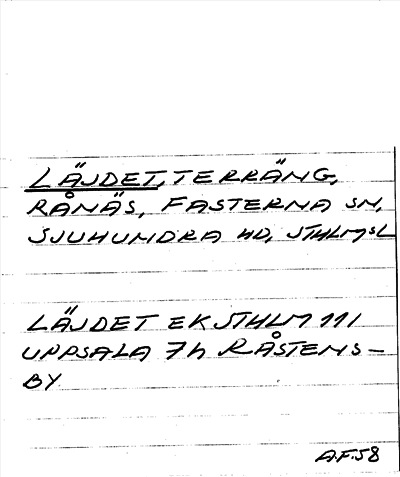 LÄJDET, TERRÄNG,
RÅNÄS, FASTERNA SN,
SJUHUNDRA HD, STHLMSL
LÄJDET EK STHLM 111
UPPSALA 7h RÅSTENS-
BY
A.F.58